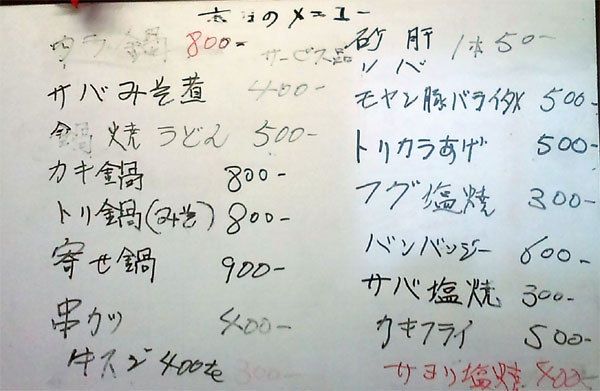 のメニュー
鍋 800-
サービス品
サバみそ煮 400-
鍋焼うどん 500-
カキ鍋 800-
トリ鍋(みそ) 800-
寄せ鍋 900-
串カツ 400-
牛スジ 400
300-
砂肝 1本50-
レバ
モヤシ豚バライタメ 500-
トリカラあげ 500-
フグ塩焼 300-
バンバンジー 600-
サバ塩焼 300-
カキフライ 500-
サヨリ塩焼 400-